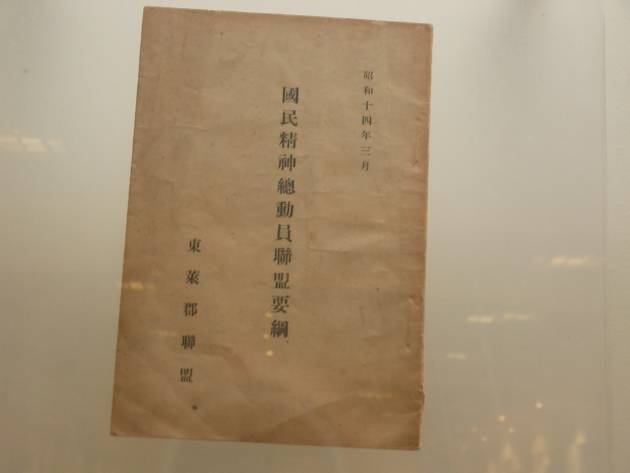 昭和十四年三月
國民精神總動員聯盟要綱
東萊郡聯盟